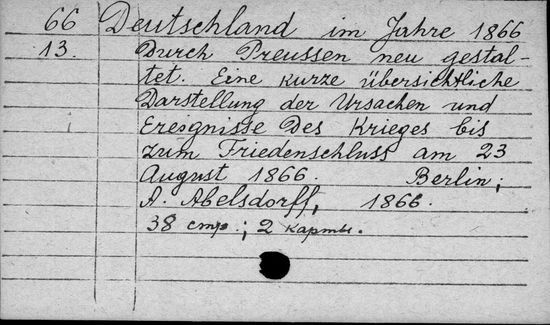 66 Deutschland im Jahre 1866
13. Durch Preussen neu gestal-
tet. Eine kurze übersichtliche
Darstellung der Ursachen und
Ereignisse Des Krieges bis
zum Friedenschluss am 23
August 1866. Berlin;
A. Abelsdorff, 1866.
38 стр.; 2 карты.